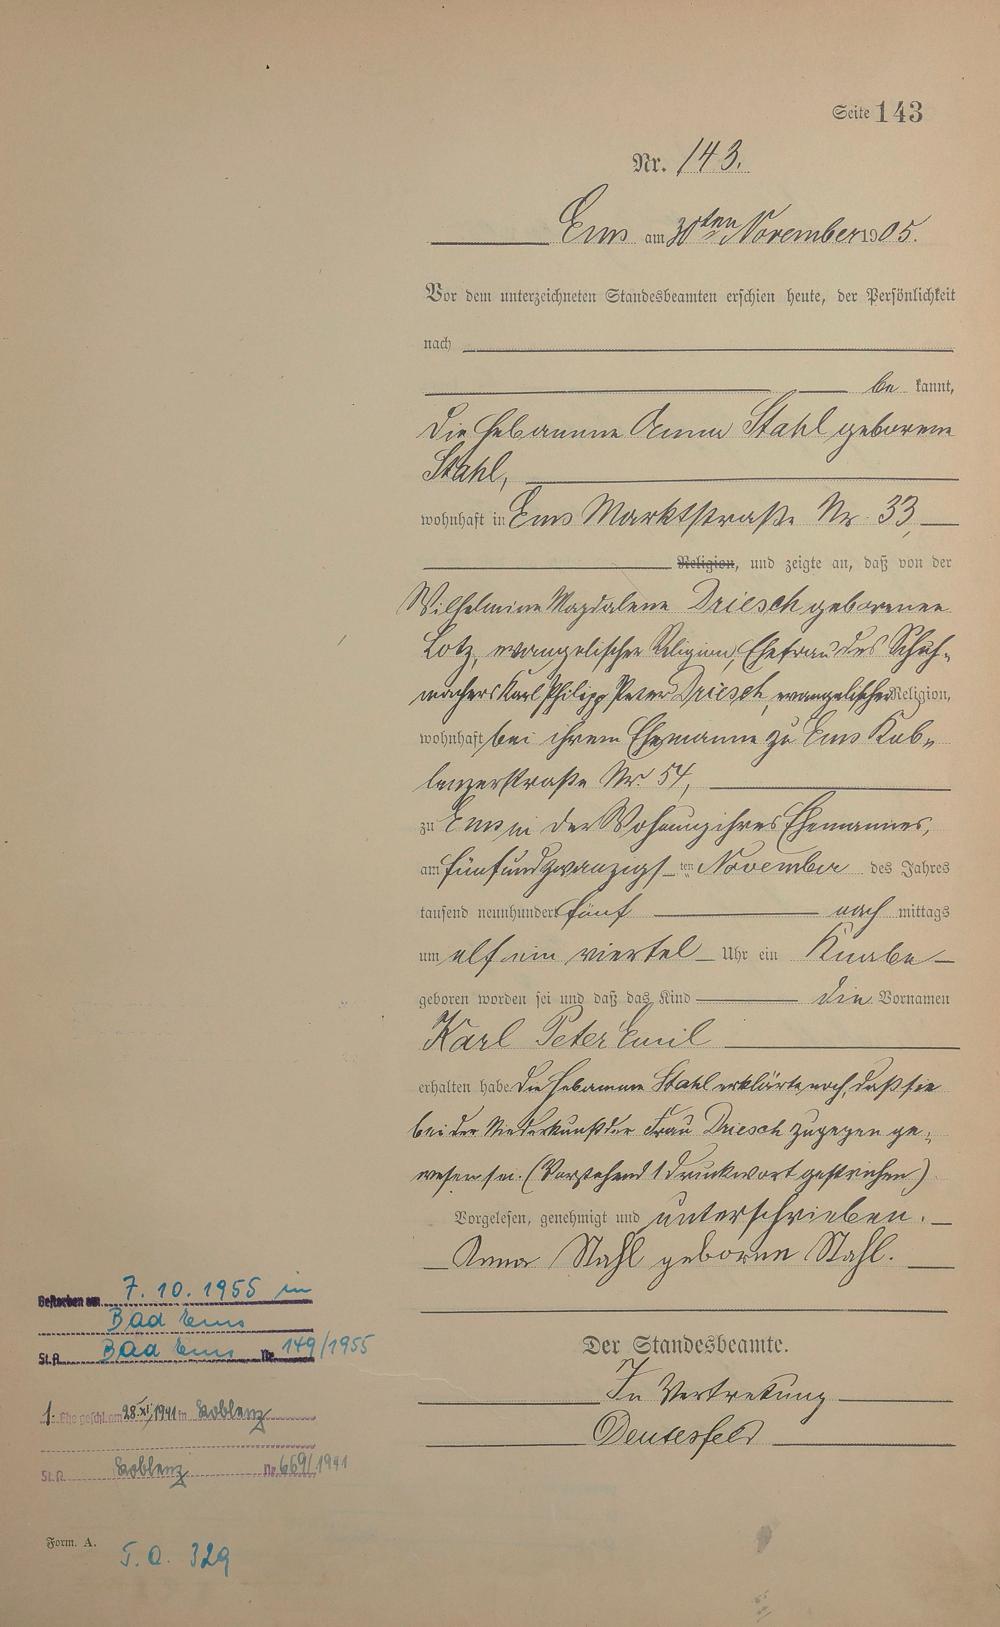 Seite 143
Nr. 143.
Ems am 30ten November 1905.
Vor dem unterzeichneten Standesbeamten erschien heute, der Persönlichkeit
nach
be kannt,
die Hebamme Anna Stahl geborene
Stahl,
wohnhaft in Ems Marktstraße Nr. 33,
Religion, und zeigte an, daß von der
Wilhelmine Magdalene Driesch geborenen
Lotz, evangelischer Religion, Ehefrau des Schuh-
machers Karl Philipp Peter Driesch, evangelischer Religion,
wohnhaft bei ihrem Ehemanne zu Ems Kob-
lenzerstraße Nr. 54,
zu Ems in der Wohnung ihres Ehemannes,
am fünfundzwanzigsten November des Jahres
tausend neunhundert fünf nach mittags
um elf ein viertel Uhr ein Knabe
geboren worden sei und daß das Kind die Vornamen
Karl Peter Emil
erhalten habe. Die Hebamme Stahl erklärte noch, daß sie
bei der Niederkunft der Frau Driesch zugegen ge-
wesen sei. (Vorstehend 1 Druckwort gestrichen)
Vorgelesen, genehmigt und unterschrieben.
Anna Stahl geborene Stahl.
Der Standesbeamte.
In Vertretung
Deutesfeld
Gestorben am 7.10.1955 in
Bad Ems
St.A. Bad Ems Nr. 149/1955
1. Ehe geschl. am 28.XI.1941 in Koblenz
St.A. Koblenz Nr. 669/1941
Form. A.
T.A. 329